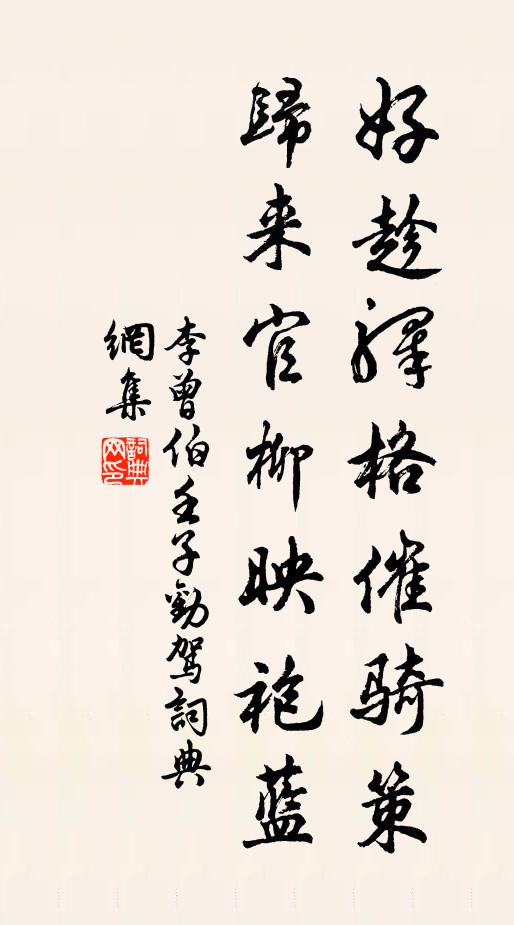 好趁驛格催騎策
歸来官柳映袍藍
李曾伯壬子勸駕詞典
網集
詞典網印